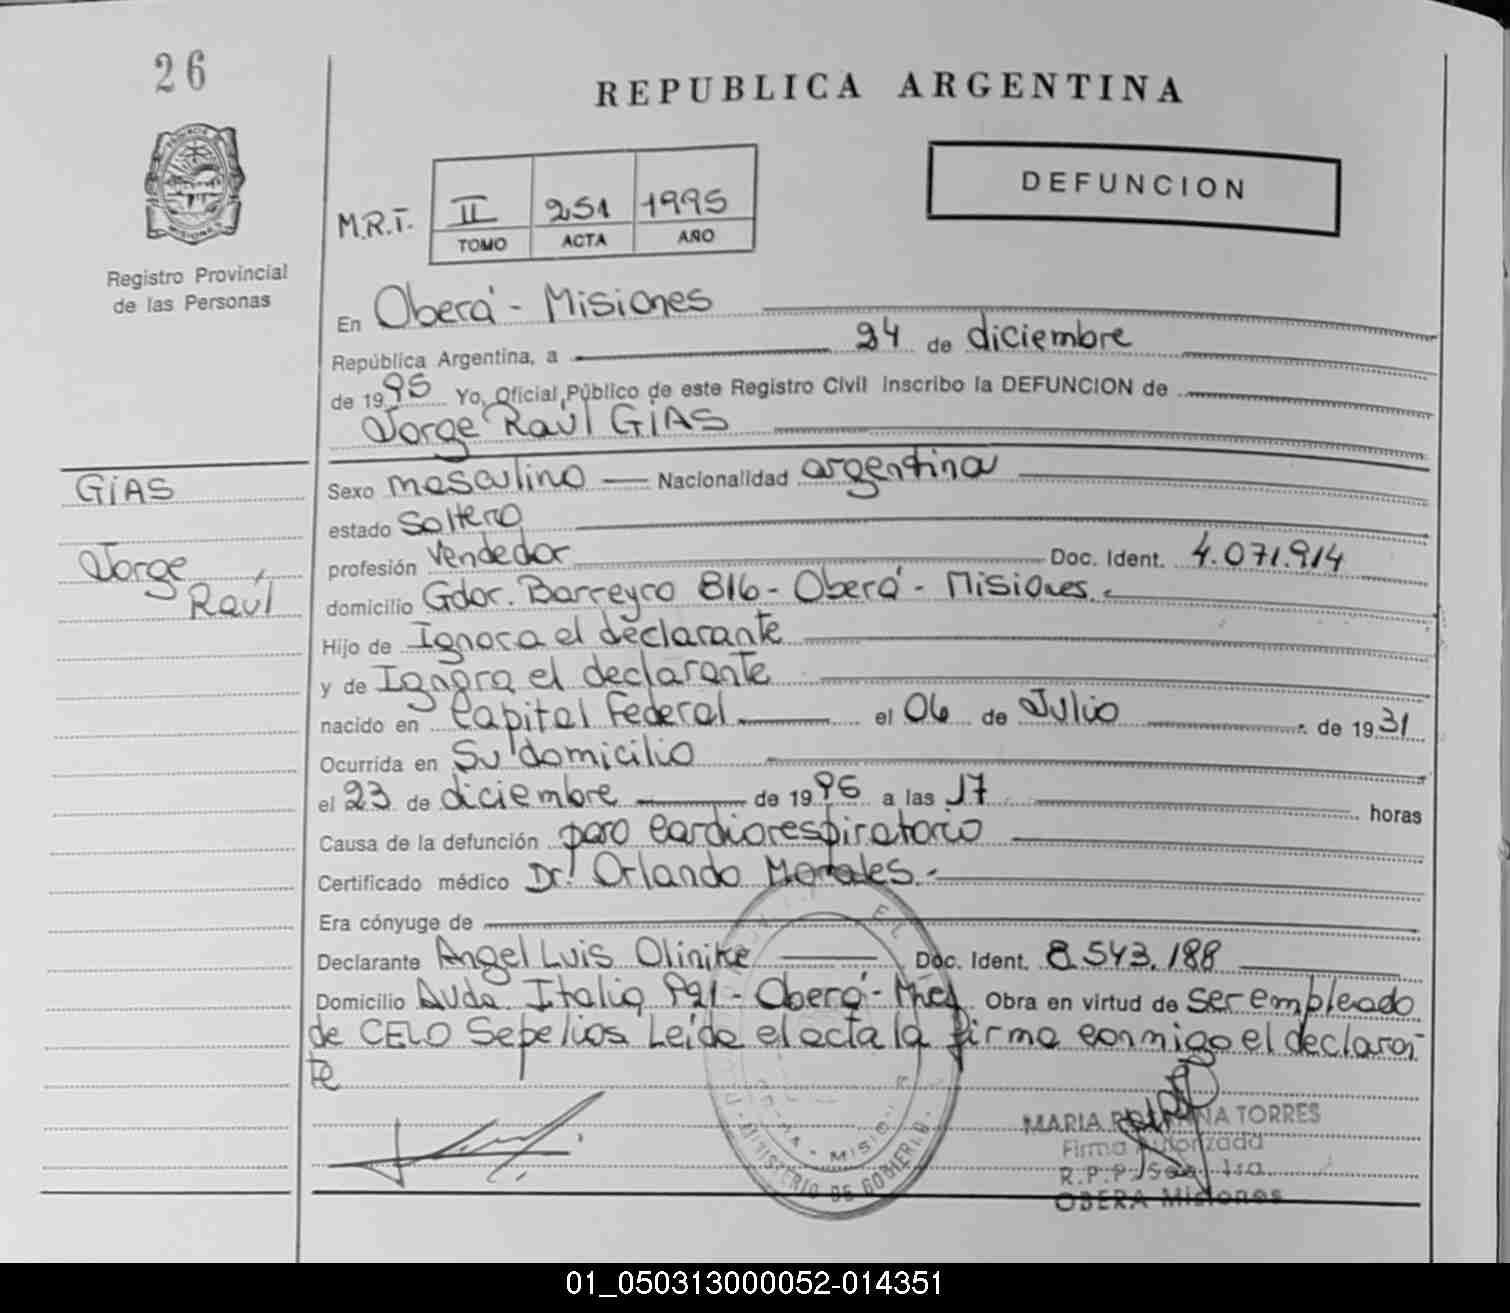 26
REPUBLICA ARGENTINA
DEFUNCION
M.R.I. II 251 1995
TOMO ACTA AÑO
Registro Provincial
de las Personas
En Oberá - Misiones
República Argentina, a 24 de diciembre
de 1995 Yo, Oficial Público de este Registro Civil inscribo la DEFUNCION de
Jorge Raúl GIAS
GIAS
Jorge
Raúl
Sexo masculino Nacionalidad argentina
estado Soltero
profesión Vendedor Doc. Ident. 4.071.914
domicilio Gdor. Barreyro 816 - Oberá - Misiones.
Hijo de Ignora el declarante
y de Ignora el declarante
nacido en Capital Federal el 06 de Julio de 1931
Ocurrida en Su domicilio
el 23 de diciembre de 1995 a las 17 horas
Causa de la defunción paro Cardiorespiratorio
Certificado médico Dr. Orlando Morales.-
Era cónyuge de
Declarante Angel Luis Olinike Doc. Ident. 8.543.188
Domicilio Avda. Italia - Oberá - Mnes Obra en virtud de ser empleado
de CELO Sepelios Leída el acta la firma conmigo el declaran
te
MINISTERIO DE GOBIERNO
MARIA TORRES
Firma Autorizada
R.P.P.
OBERA Misiones
01_050313000052-014351